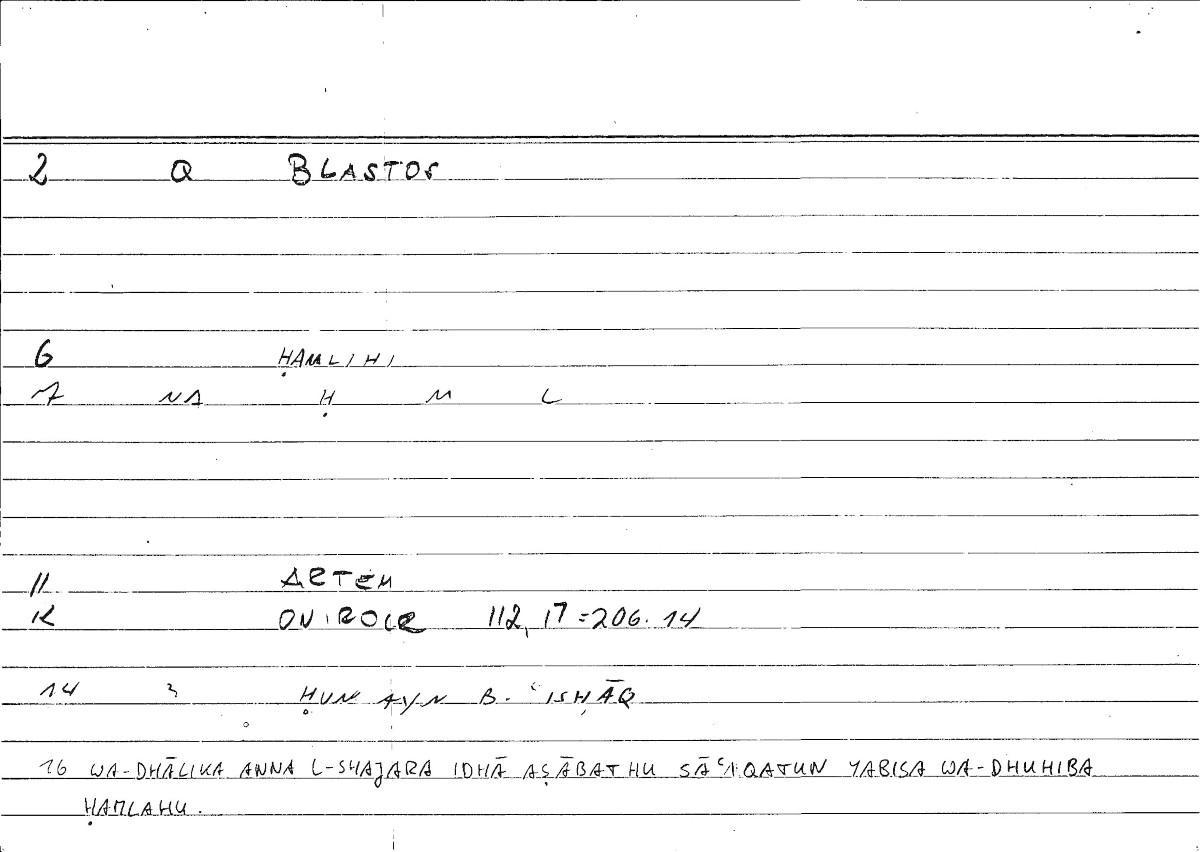 2 Q BLASTOS
6 ḤAMLIHI
7 NA Ḥ M L
11 ARTEM
12 ONIROCR 112, 17 = 206. 14
14 3 ḤUNAYN B. ʿISḤĀQ
16 WA-DHĀLIKA ANNA L-SHAJARA IDHĀ AṢĀBATHU SĀʿIQATUN YABISA WA-DHUHIBA
ḤAMLAHU.